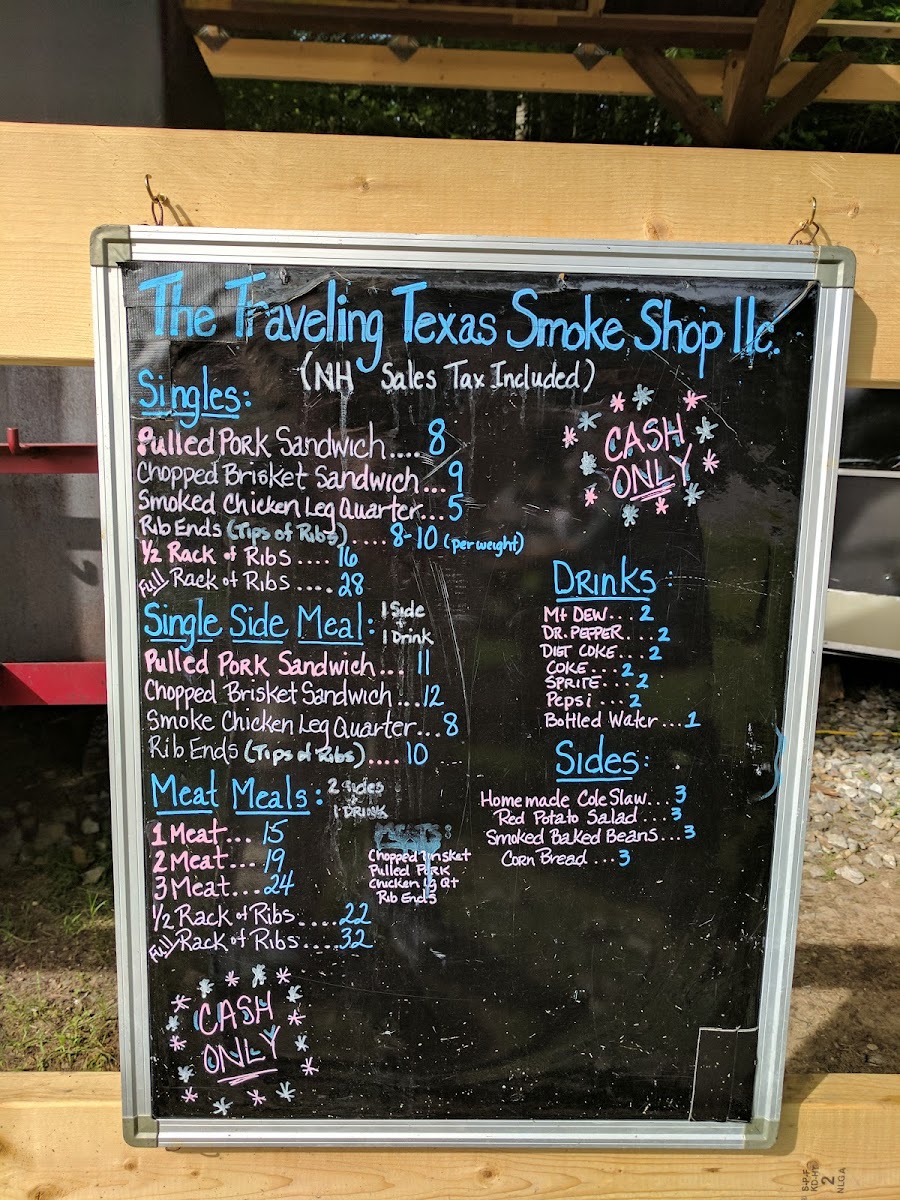 The Traveling Texas Smoke Shop llc.
(NH Sales Tax Included)
Singles:
Pulled Pork Sandwich.... 8
Chopped Brisket Sandwich... 9
Smoked Chicken Leg Quarter... 5
Rib Ends (Tips of Ribs).... 8-10 (per weight)
1/2 Rack of Ribs .... 16
Full Rack of Ribs .... 28
CASH
ONLY
Single Side Meal: 1 Side + 1 Drink
Pulled Pork Sandwich... 11
Chopped Brisket Sandwich ...12
Smoke Chicken Leg Quarter... 8
Rib Ends (Tips of Ribs).... 10
Meat Meals: 2 Sides + 1 Drink
1 Meat... 15
2 Meat... 19
3 Meat.... 24
1/2 Rack of Ribs.....22
Full Rack of Ribs....32
Meats:
Chopped Brisket
Pulled Pork
Chicken Lg Qt
Rib Ends
CASH
ONLY
Drinks:
Mt Dew... 2
Dr. Pepper.... 2
Diet Coke... 2
Coke... 2
Sprite... 2
Pepsi ... 2
Bottled Water...1
Sides:
Homemade Cole Slaw... 3
Red Potato Salad ... 3
Smoked Baked Beans...3
Corn Bread ...3
S-P-F
KD-HT
2
NLGA